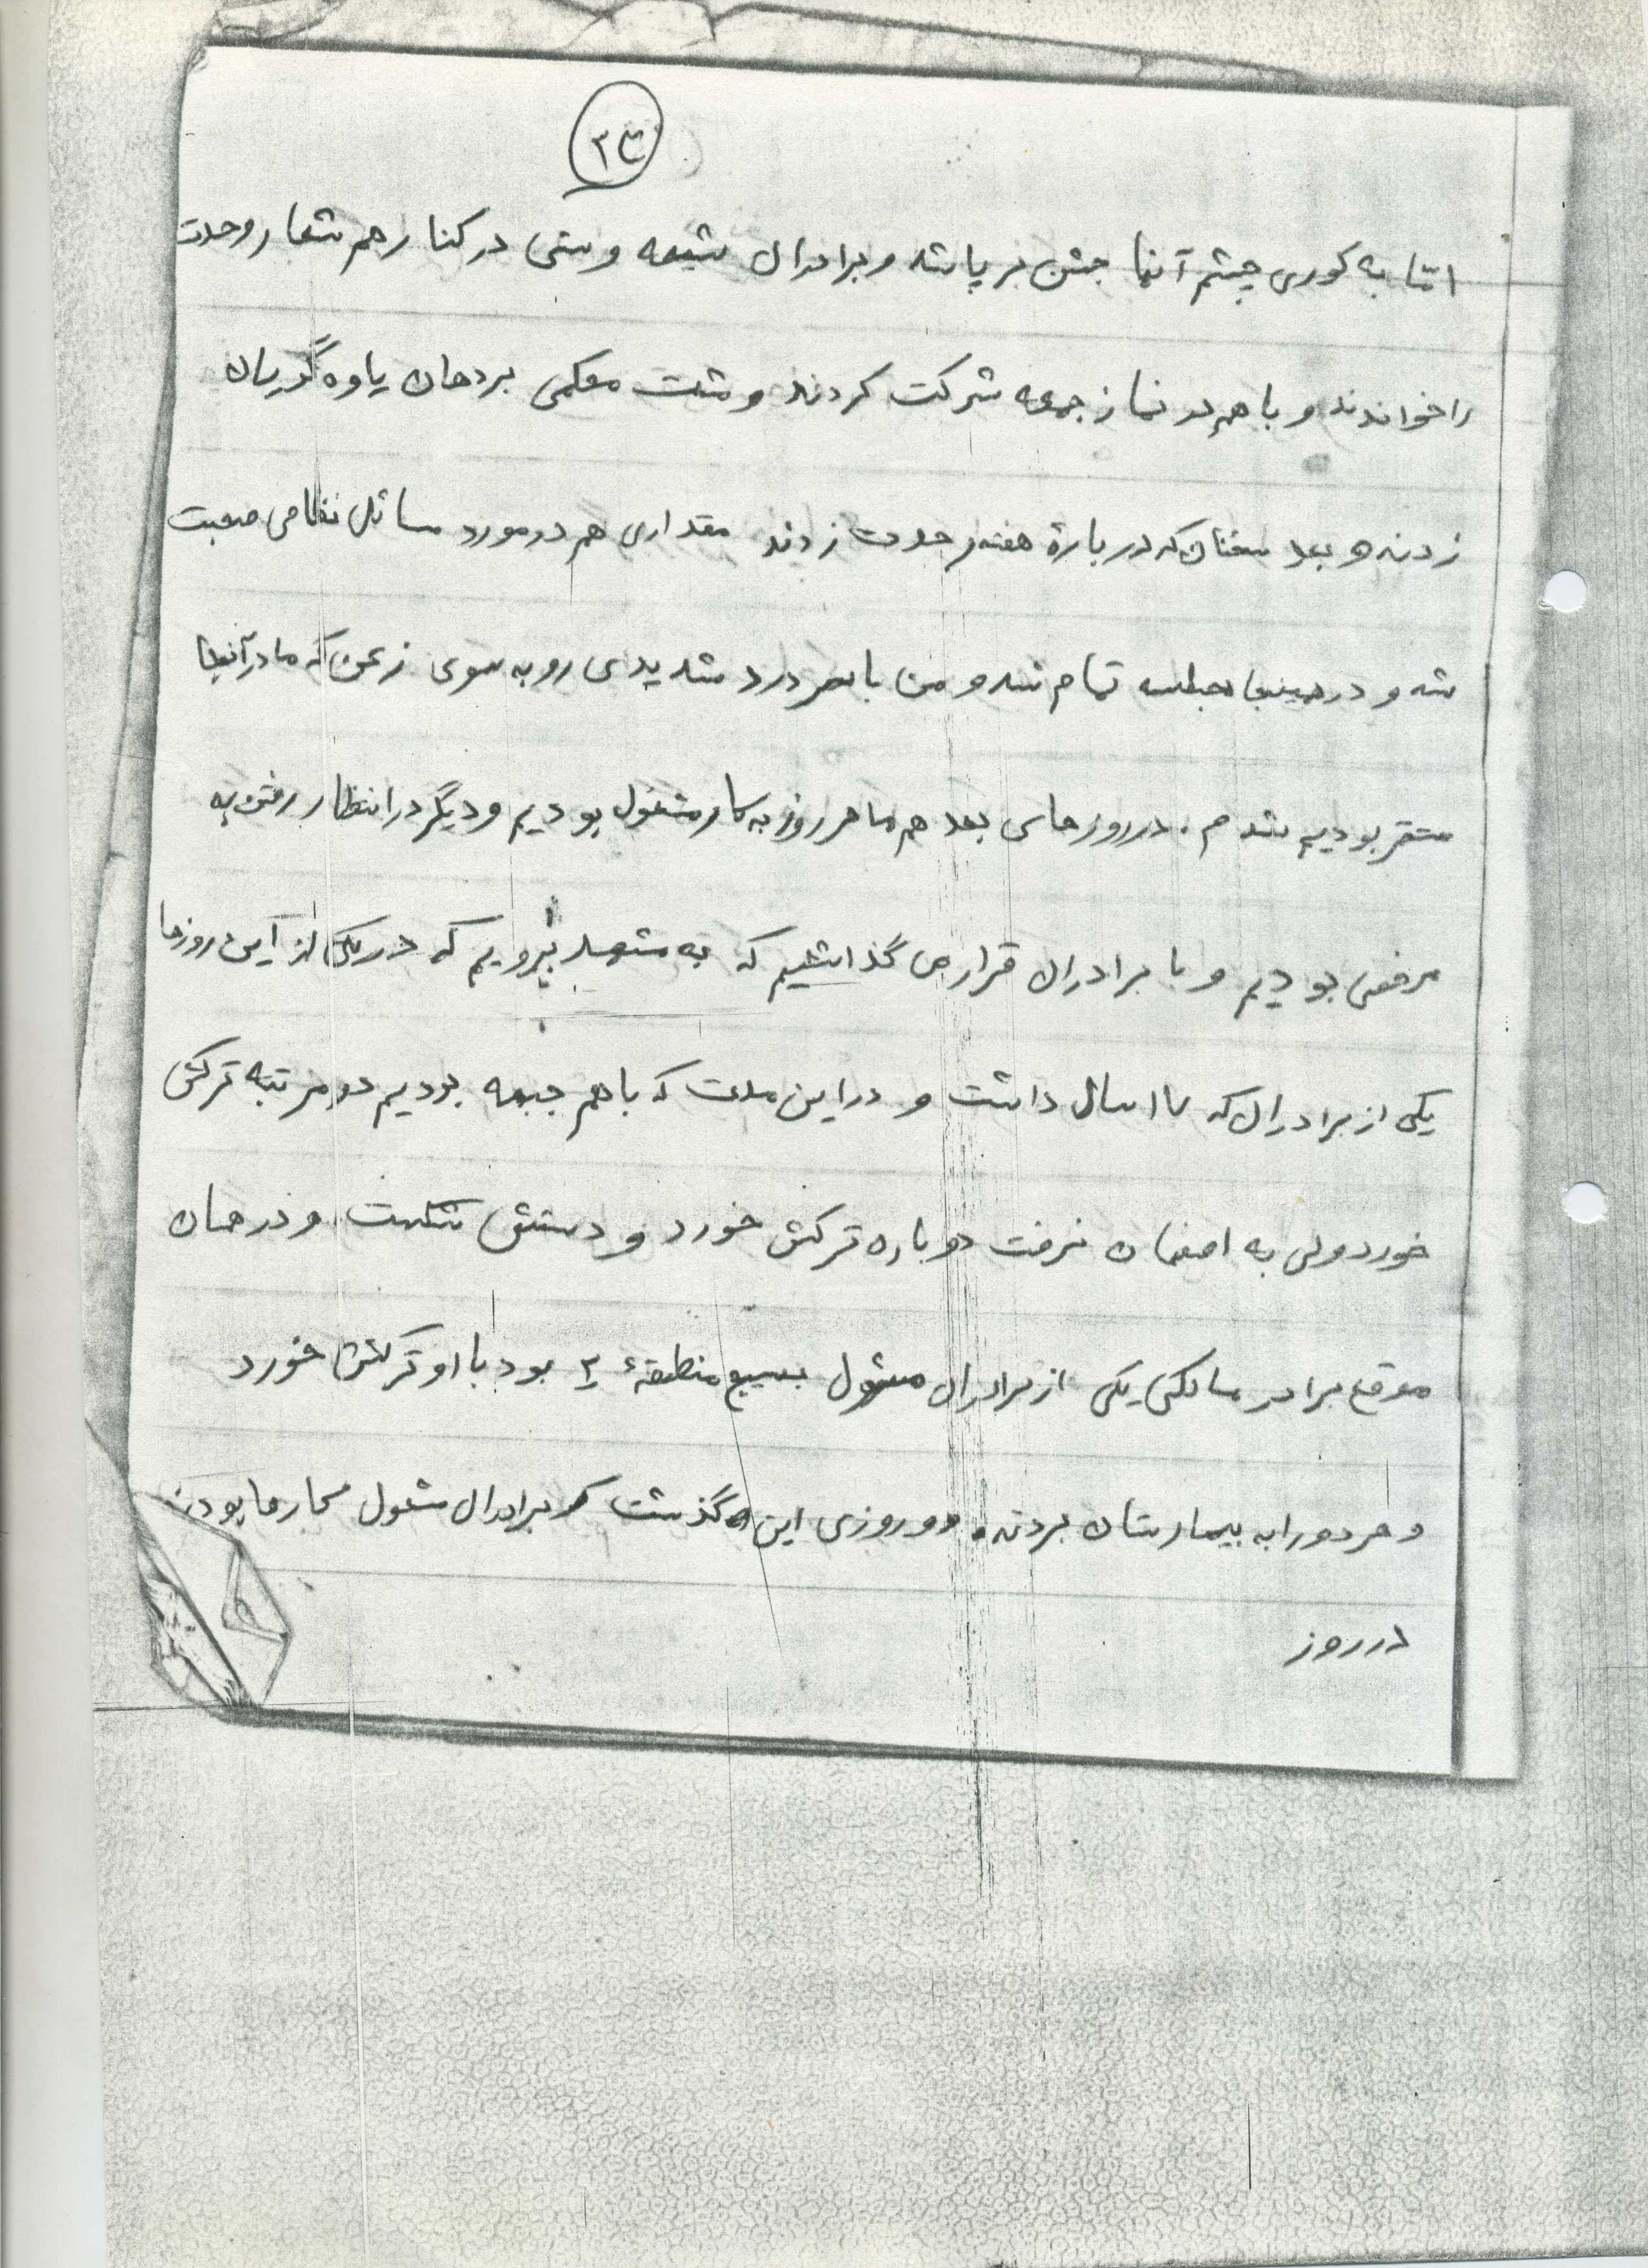 ۲۴
امّا به کوری چشم آنها جشن برپا شد و برادران شیعه و سنی در کنار هم شعار وحدت
را خواندند و با هم در نماز جمعه شرکت کردند و مشت محکمی بر دهان یاوه گویان
زدند و بعد سخنان که درباره هفته وحدت زدند مقداری هم در مورد مسائل نظامی صحبت
شد و در همینجا جلسه تمام شد و من با سر درد شدیدی رو به سوی که ما در آنجا
مستقر بودیم شدم . در روزهای بعد هم ما هر روز به کار مشغول بودیم و دیگر در انتظار رفتن به
مرخصی بودیم و با برادران قرار می گذاشتیم که به مشهد برویم که در یکی از این روزها
یکی از برادران که ۱۷ سال داشت و در این مدت که با هم جبهه بودیم دو مرتبه ترکش
خورد ولی به اصفهان نرفت دوباره ترکش خورد و دستش شکست و در همان
موقع برادر مالکی یکی از برادران مسئول بسیج منطقهٔ ۲ بود با او ترکش خورد
و هر دو را به بیمارستان بردند. دو روزی این گذشت که برادران مشغول کارها بودند
در روز